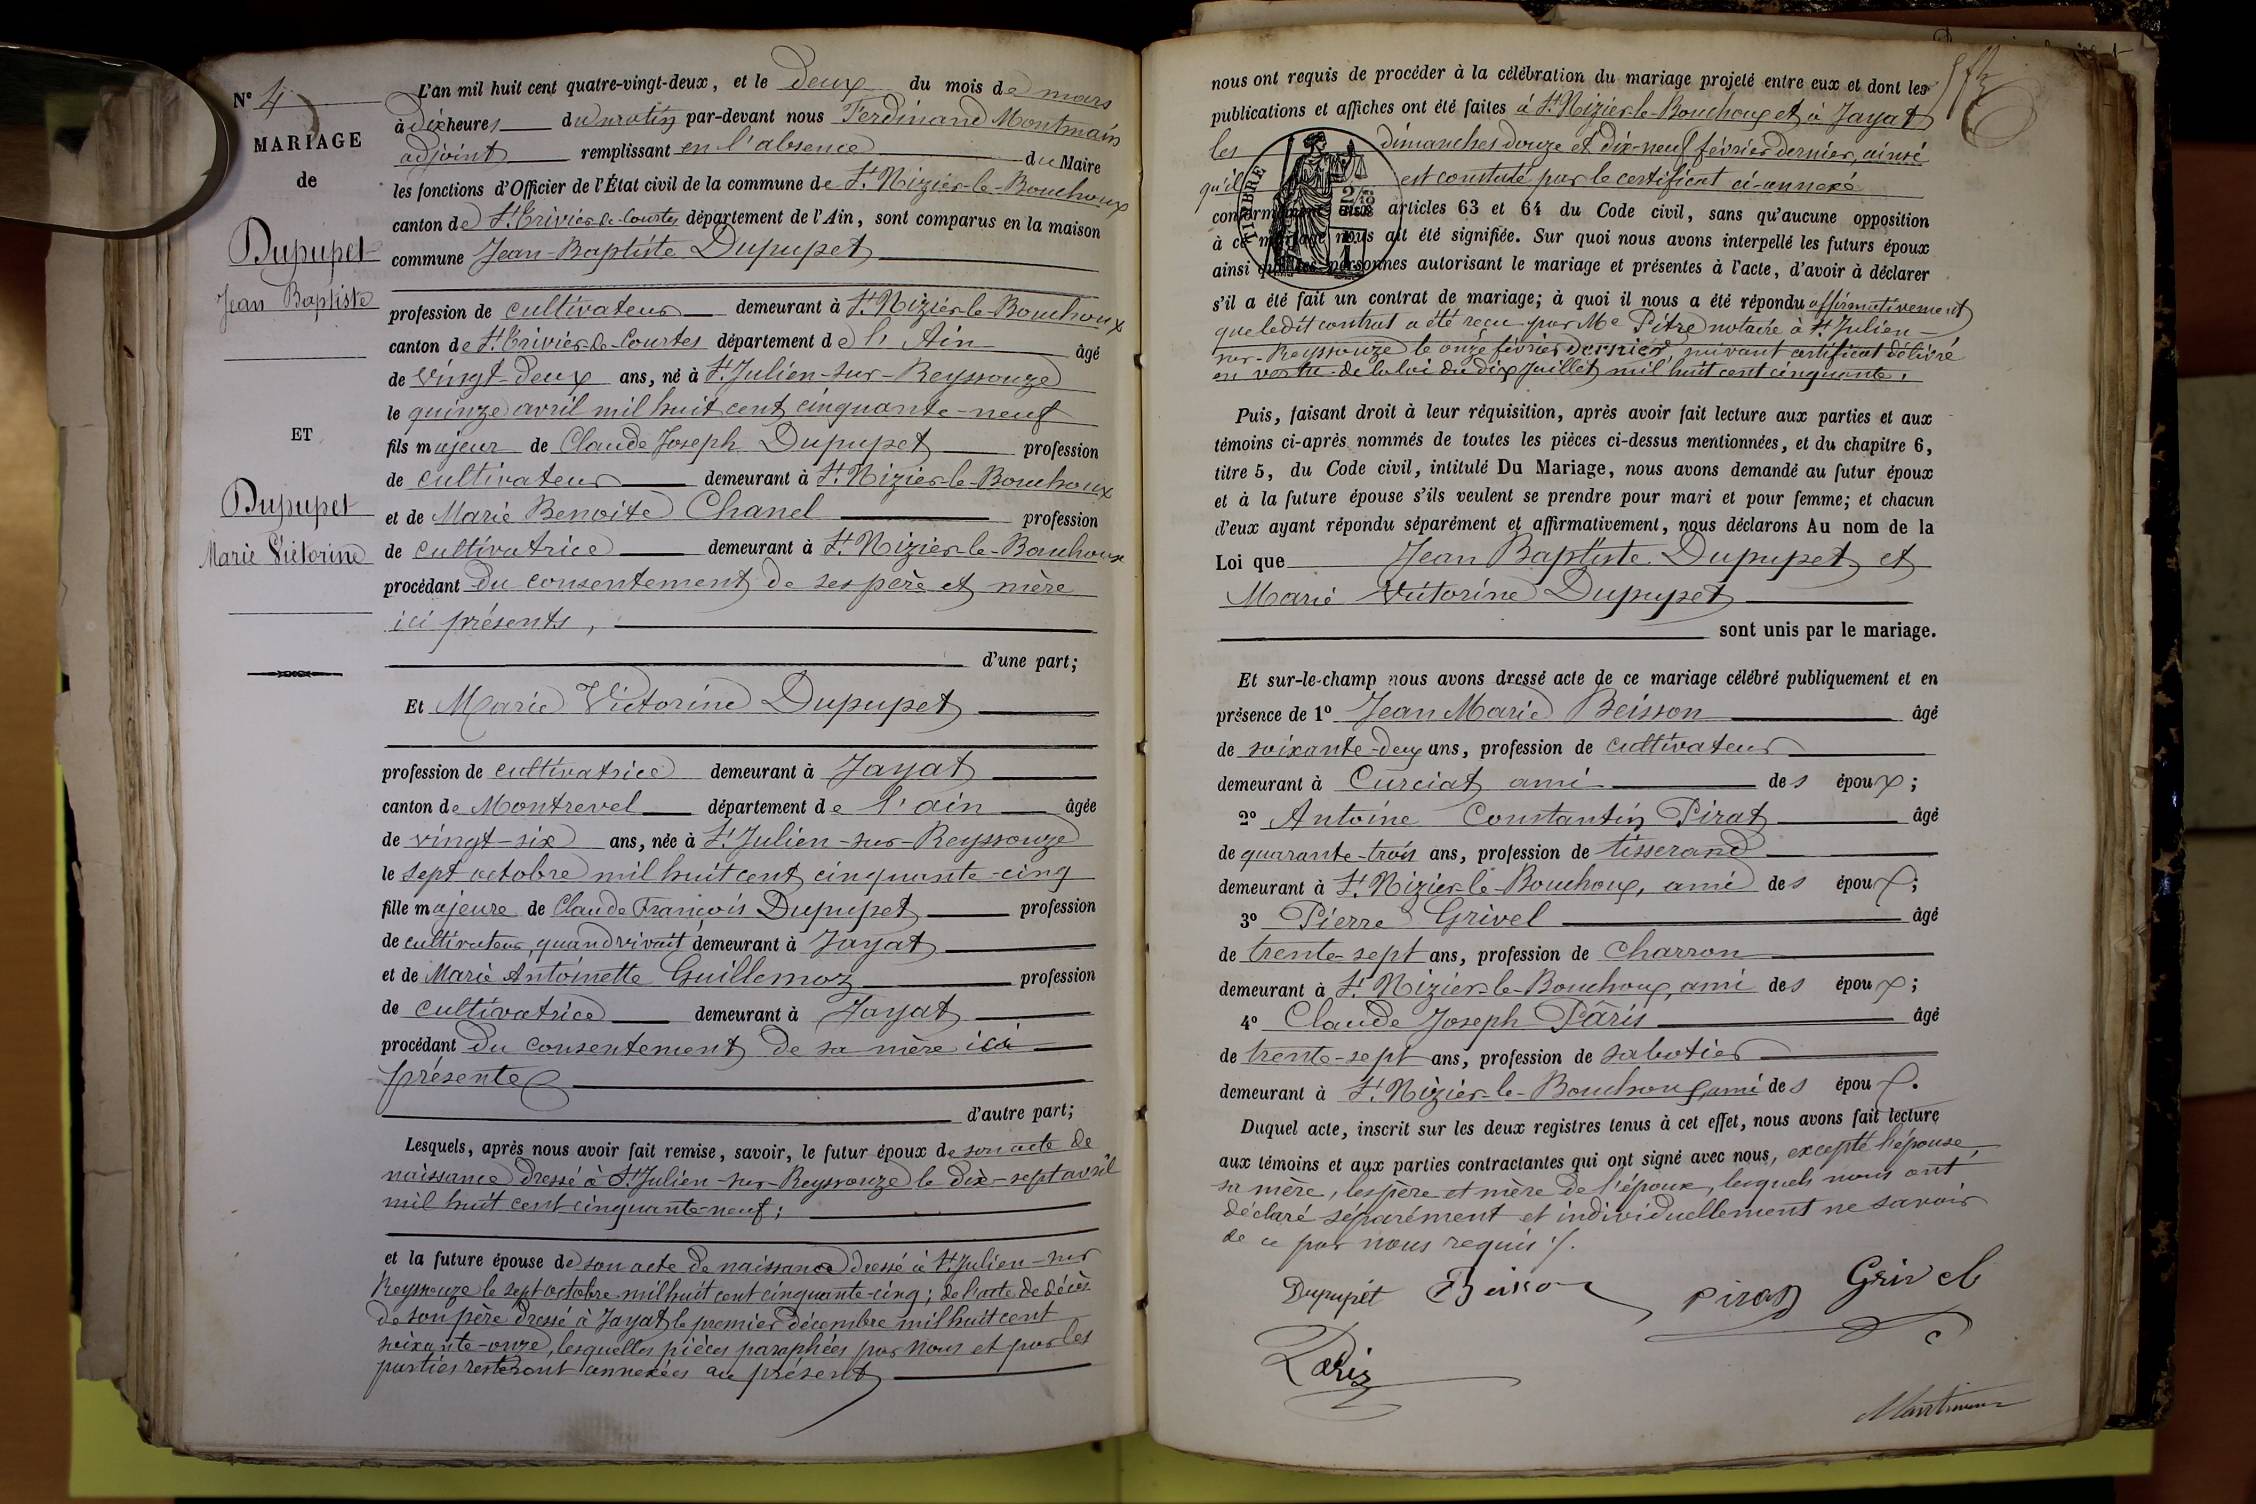 N° 4
MARIAGE
de
Dupupet
Jean Baptiste
ET
Dupupet
Marie Victorine
L'an mil huit cent quatre-vingt-deux, et le deux du mois de mars
à dix heures du matin par-devant nous Ferdinand Montmain
adjoint remplissant en l'absence du Maire
les fonctions d'Officier de l'État civil de la commune de St Nizier-le-Bouchoux
canton de St Trivier-de-Courtes département de l'Ain, sont comparus en la maison
commune Jean-Baptiste Dupupet
profession de cultivateur demeurant à St Nizier-le-Bouchoux
canton de St Trivier-de-Courtes département de l'Ain âgé
de vingt-deux ans, né à St Julien-sur-Reyssouze
le quinze avril mil huit cent cinquante-neuf
fils majeur de Claude Joseph Dupupet profession
de cultivateur demeurant à St Nizier-le-Bouchoux
et de Marie Benoite Chanel profession
de cultivatrice demeurant à St Nizier-le-Bouchoux
procédant du consentement de ses père et mère
ici présents,
d'une part;
Et Marie Victorine Dupupet
profession de cultivatrice demeurant à Jayat
canton de Montrevel département de l'ain âgée
de vingt-six ans, née à St Julien-sur-Reyssouze
le sept octobre mil huit cent cinquante-cinq
fille majeure de Claude François Dupupet profession
de cultivateur, quand vivait demeurant à Jayat
et de Marie Antoinette Guillemoz profession
de cultivatrice demeurant à Jayat
procédant du consentement de sa mère ici
présente
d'autre part;
Lesquels, après nous avoir fait remise, savoir, le futur époux de son acte de
naissance dressé à St Julien-sur-Reyssouze le dix-sept avril
mil huit cent cinquante-neuf;
et la future épouse de son acte de naissance dressé à St Julien-sur
Reyssouze le sept octobre mil huit cent cinquante-cinq; de l'acte de décès
de son père dressé à Jayat le premier décembre mil huit cent
soixante-onze, lesquelles pièces paraphées par nous et par les
parties resteront annexées au présent
nous ont requis de procéder à la célébration du mariage projeté entre eux et dont les
publications et affiches ont été faites à St Nizier-le-Bouchoux et à Jayat
les dimanches douze et dix-neuf février dernier, ainsi
qu'il est constaté par le certificat ci-annexé
TIMBRE
conformément aux articles 63 et 64 du Code civil, sans qu'aucune opposition
à ce mariage nous ait été signifiée. Sur quoi nous avons interpellé les futurs époux
ainsi que les personnes autorisant le mariage et présentes à l'acte, d'avoir à déclarer
s'il a été fait un contrat de mariage; à quoi il nous a été répondu affirmativement
que ledit contrat a été reçu par Me Pitre notaire à St Julien-
sur-Reyssouze le onze février dernier, suivant certificat délivré
en vertu de la loi du dix Juillet mil huit cent cinquante.
Puis, faisant droit à leur réquisition, après avoir fait lecture aux parties et aux
témoins ci-après nommés de toutes les pièces ci-dessus mentionnées, et du chapitre 6,
titre 5, du Code civil, intitulé Du Mariage, nous avons demandé au futur époux
et à la future épouse s'ils veulent se prendre pour mari et pour femme; et chacun
d'eux ayant répondu séparément et affirmativement, nous déclarons Au nom de la
Loi que Jean Baptiste Dupupet et
Marie Victorine Dupupet
sont unis par le mariage.
Et sur-le-champ nous avons dressé acte de ce mariage célébré publiquement et en
présence de 1° Jean Marie Beisson âgé
de soixante-deux ans, profession de cultivateur
demeurant à Curciat ami des époux;
2° Antoine Constantin Pirat âgé
de quarante-trois ans, profession de tisserand
demeurant à St Nizier-le-Bouchoux, ami des époux;
3° Pierre Grivel âgé
de trente-sept ans, profession de charron
demeurant à St Nizier-le-Bouchoux, ami des époux;
4° Claude Joseph Pâris âgé
de trente-sept ans, profession de sabotier
demeurant à St Nizier-le-Bouchoux, ami des époux.
Duquel acte, inscrit sur les deux registres tenus à cet effet, nous avons fait lecture
aux témoins et aux parties contractantes qui ont signé avec nous, excepté l'épouse,
sa mère, les père et mère de l'époux, lesquels nous ont
déclaré séparément et individuellement ne savoir
de ce par nous requis ./.
Dupupet Beisson Pirat Grivel
Paris
Montmain